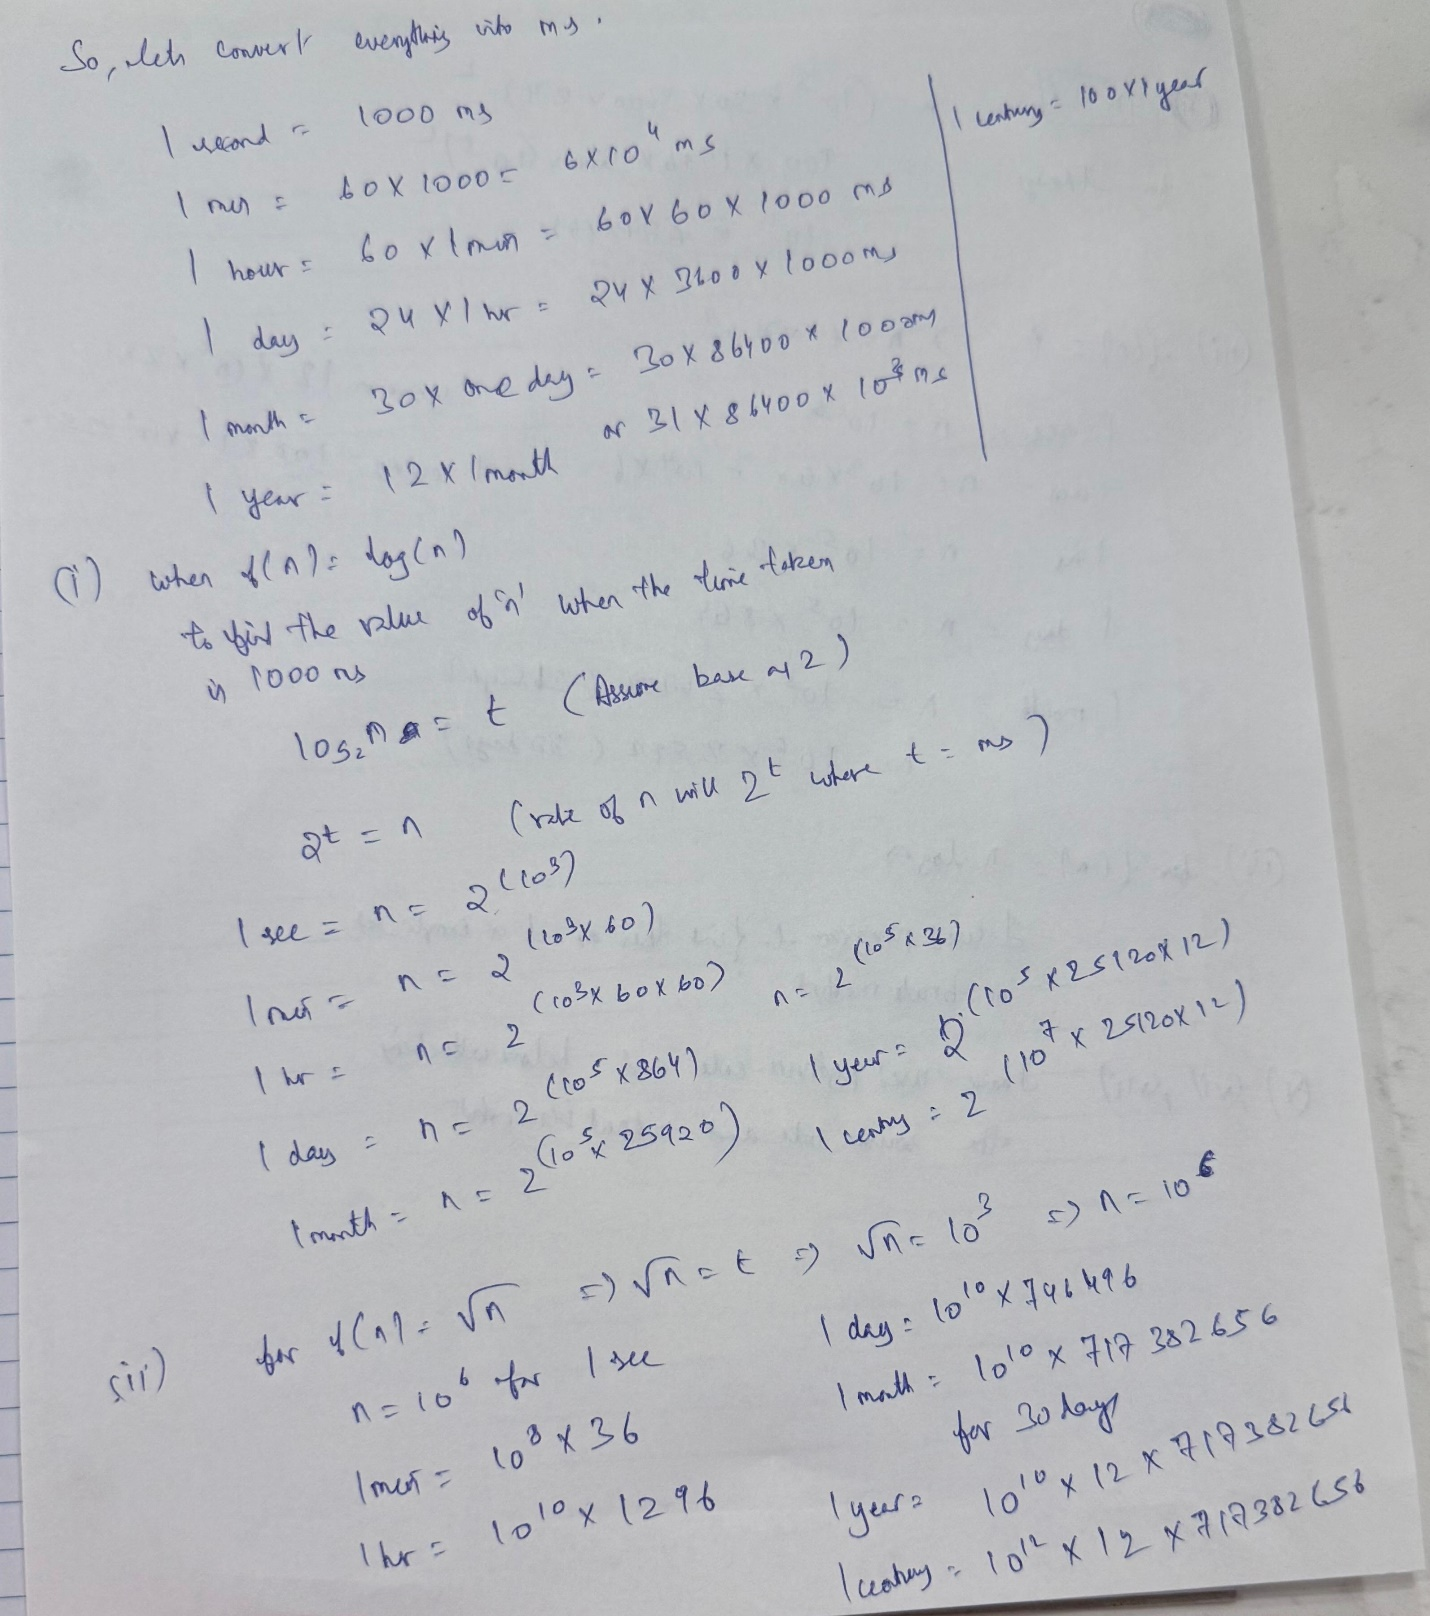 So, lets convert everything into ms.
1 second = 1000 ms
1 min = 60 X 1000 = 6X10^4 ms
1 hour = 60 x 1 min = 60 X 60 X 1000 ms
1 day = 24 X 1 hr = 24 X 3600 X 1000 ms
1 month = 30 X one day = 30 X 86400 X 1000 ms
or 31 X 86400 X 10^3 ms
1 year = 12 X 1 month
1 century = 100X1 year
(i) when f(n) = log(n)
to find the value of 'n' when the time taken
is 1000 ms
log₂ n = t (Assume base as 2)
2^t = n (value of n will 2^t where t = ms)
1 sec = n = 2^(10^3)
1 min = n = 2^(10^3 X 60)
1 hr = n = 2^(10^3 X 60 X 60) n = 2^(10^5 X 36)
1 day = n = 2^(10^5 X 864)
1 month = n = 2^(10^5 X 25920)
1 year = 2^(10^5 X 25120X 12)
1 century = 2^(10^7 X 25120X 12)
(ii) for f(n) = √n => √n = t => √n = 10^3 => n = 10^6
n = 10^6 for 1 sec
1 min = 10^8 X 36
1 hr = 10^10 X 1296
1 day = 10^10 X 746496
1 month = 10^10 X 717 382 656
for 30 days
1 year = 10^10 X 12 X 717382656
1 century = 10^12 X 12 X 717382656